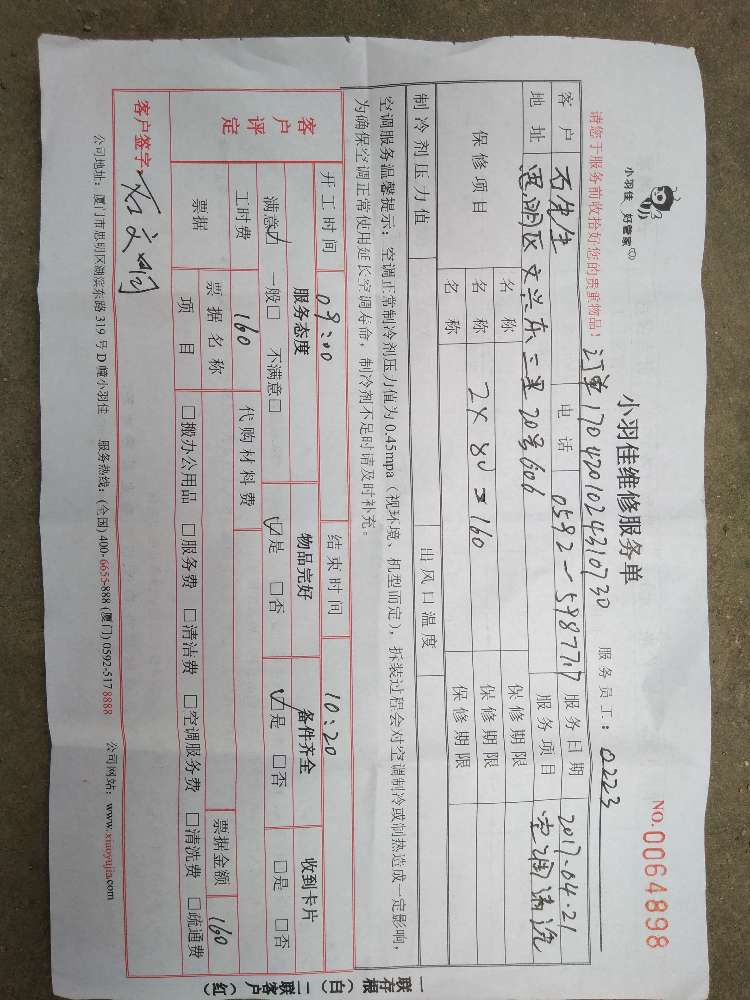 小羽佳 好管家
小羽佳维修服务单
NO.0064898
请您于服务前收拾好您的贵重物品！ 订单1704201024310730 服务员工：0223
客户 石先生 电话 0592-5987717 服务日期 2017.04.21
地址 思明区文兴东二里20号606 服务项目 空调清洗
保修项目 名称 保修期限
名称 2×80=160 保修期限
名称 保修期限
制冷剂压力值 出风口温度
空调服务温馨提示：空调正常制冷剂压力值为0.45mpa（视环境、机型而定），拆装过程会对空调制冷或制热造成一定影响，
为确保空调正常使用延长空调寿命，制冷剂不足时请及时补充。
开工时间 09:00 结束时间 10:20
客户评定 服务态度 物品完好 备件齐全 收到卡片
满意☑ 一般□ 不满意□ ☑是 □否 ☑是 □否 □是 □否
工时费 160 代购材料费
票据 票据名称 票据金额 160
项目 □搬办公用品 □服务费 □清洁费 □空调服务费 □清洗费 □疏通费
客户签字：石文
公司地址：厦门市思明区湖滨东路319号D幢小羽佳 服务热线：(全国) 400-6655-888 (厦门) 0592-517 8888 公司网站：www.xiaoyujia.com
一联存根（白） 二联客户（红）